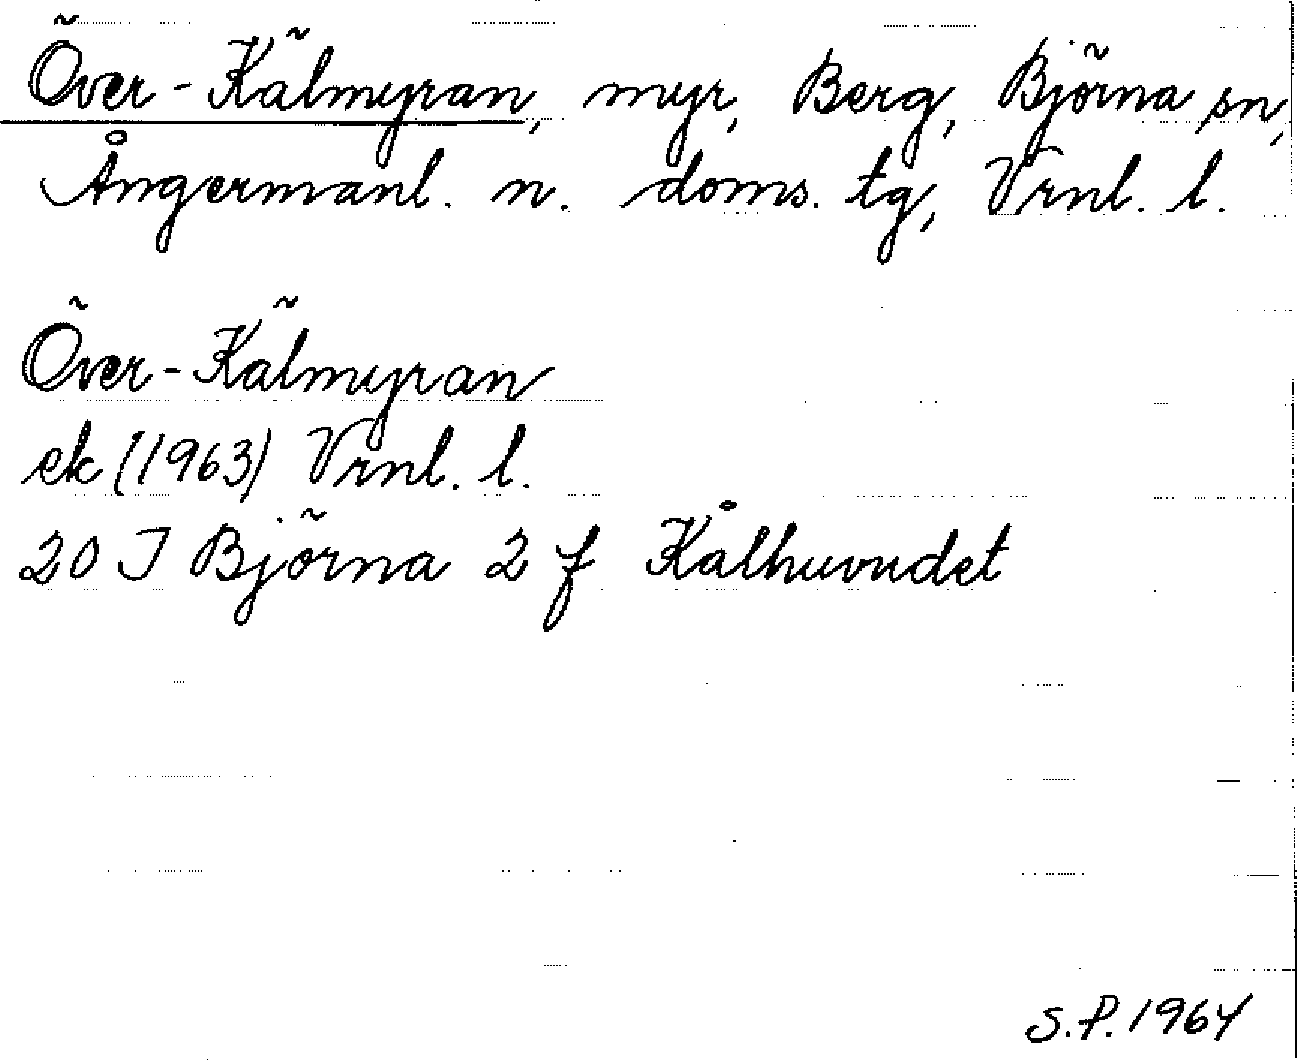 Över-Kälmyran, myr, Berg, Björna sn,
Ångermanl. n. doms. tg, Vrnl. l.
Över-Kälmyran
ek (1963) Vrnl. l.
20 J Björna 2 f Kålhuvudet
S.P. 1964